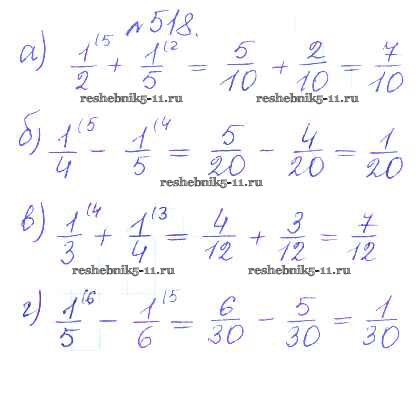 №518.
а) 1/2 (5 + 1/5 (2 = 5/10 + 2/10 = 7/10
reshebnik5-11.ru reshebnik5-11.ru
б) 1/4 (5 - 1/5 (4 = 5/20 - 4/20 = 1/20
reshebnik5-11.ru
в) 1/3 (4 + 1/4 (3 = 4/12 + 3/12 = 7/12
reshebnik5-11.ru reshebnik5-11.ru
г) 1/5 (6 - 1/6 (5 = 6/30 - 5/30 = 1/30